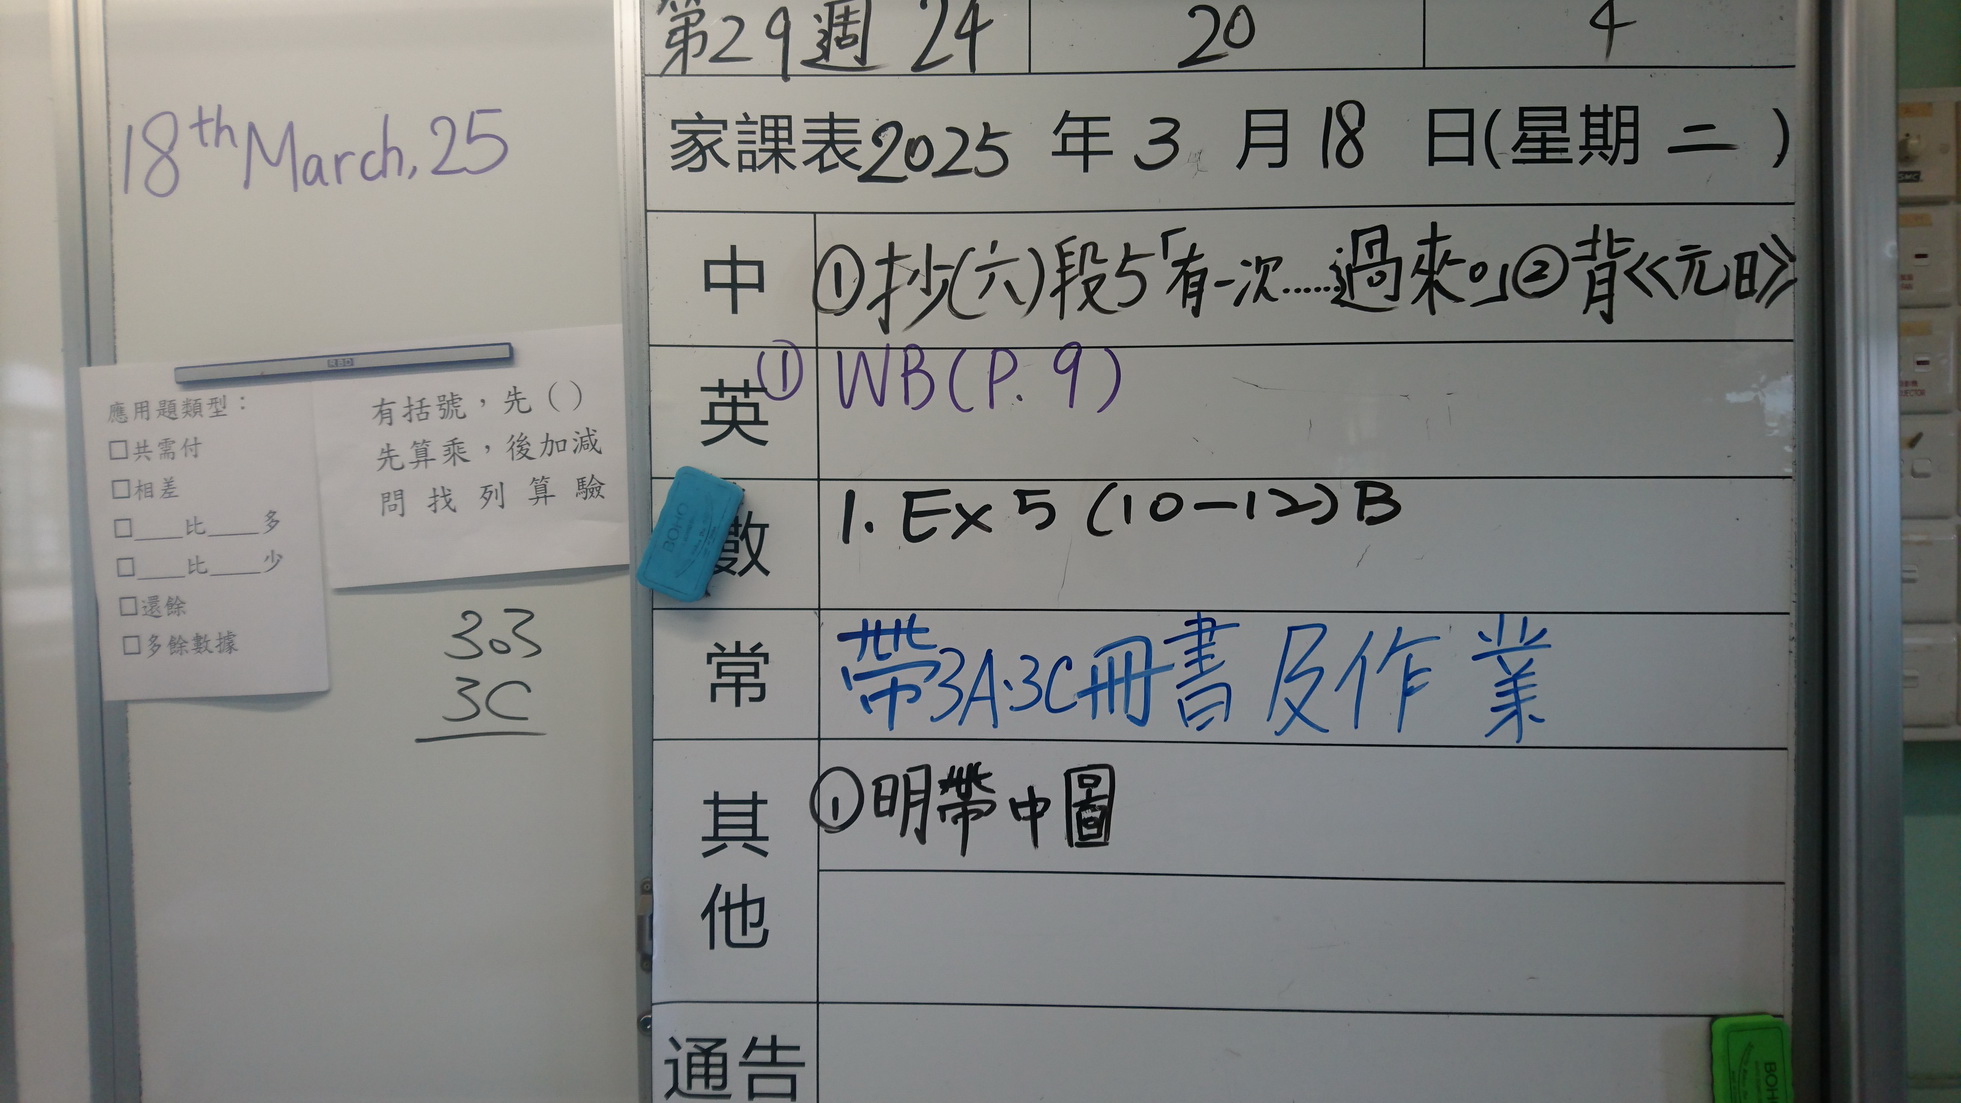 18th March, 25
應用題類型：
□共需付
□相差
□____比____多
□____比____少
□還餘
□多餘數據
有括號，先（）
先算乘，後加減
問找列算驗
303
3C
第29週 24 20 4
家課表2025年3月18日(星期二)
中 ①抄(六)段5「有一次……過來。」②背《元日》
英 ① WB(P.9)
數 1. Ex 5 (10-12) B
常 帶3A.3C冊書及作業
其他 ①明帶中圖
通告
BOHO
BOHO